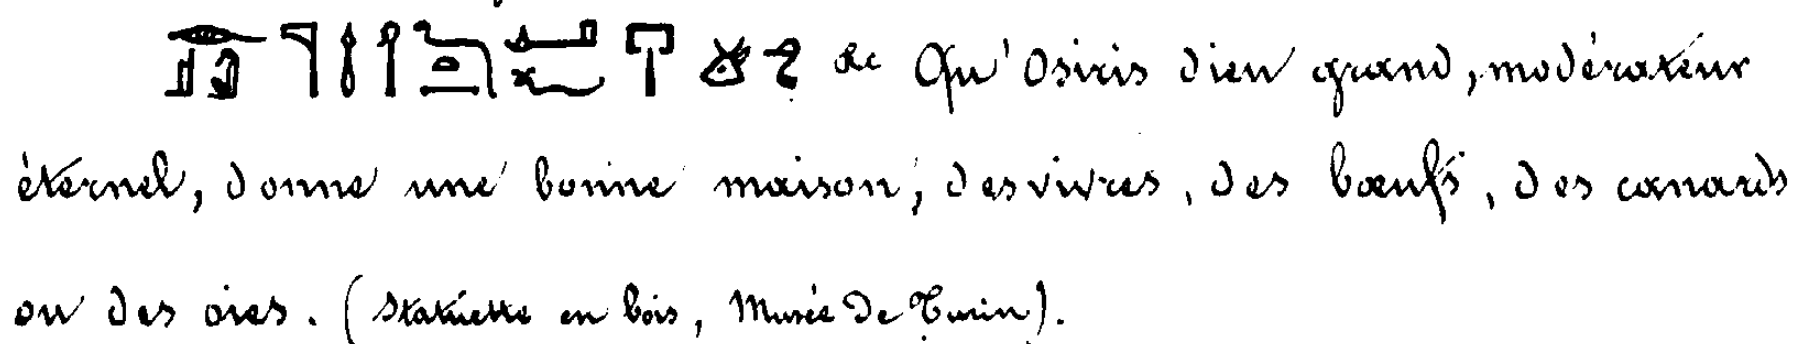 &c Qu'Osiris dieu grand, modérateur
éternel, donne une bonne maison, des vivres, des bœufs, des canards
ou des oies. (Statuette en bois, Musée de Turin).